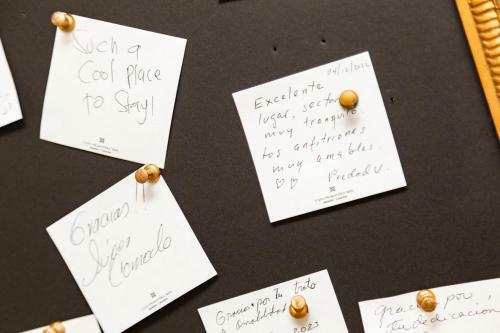 Such a
Cool place
to Stay!
04/12/2022
Excelente
lugar, sector
muy tranquilo
Los anfitriones
muy amables.
♡ ♡ Piedad V.
Gracias!!
Súper
Comodo
Gracias por tu trato
y amabilidad
2023
Gracias por
tu dedicación